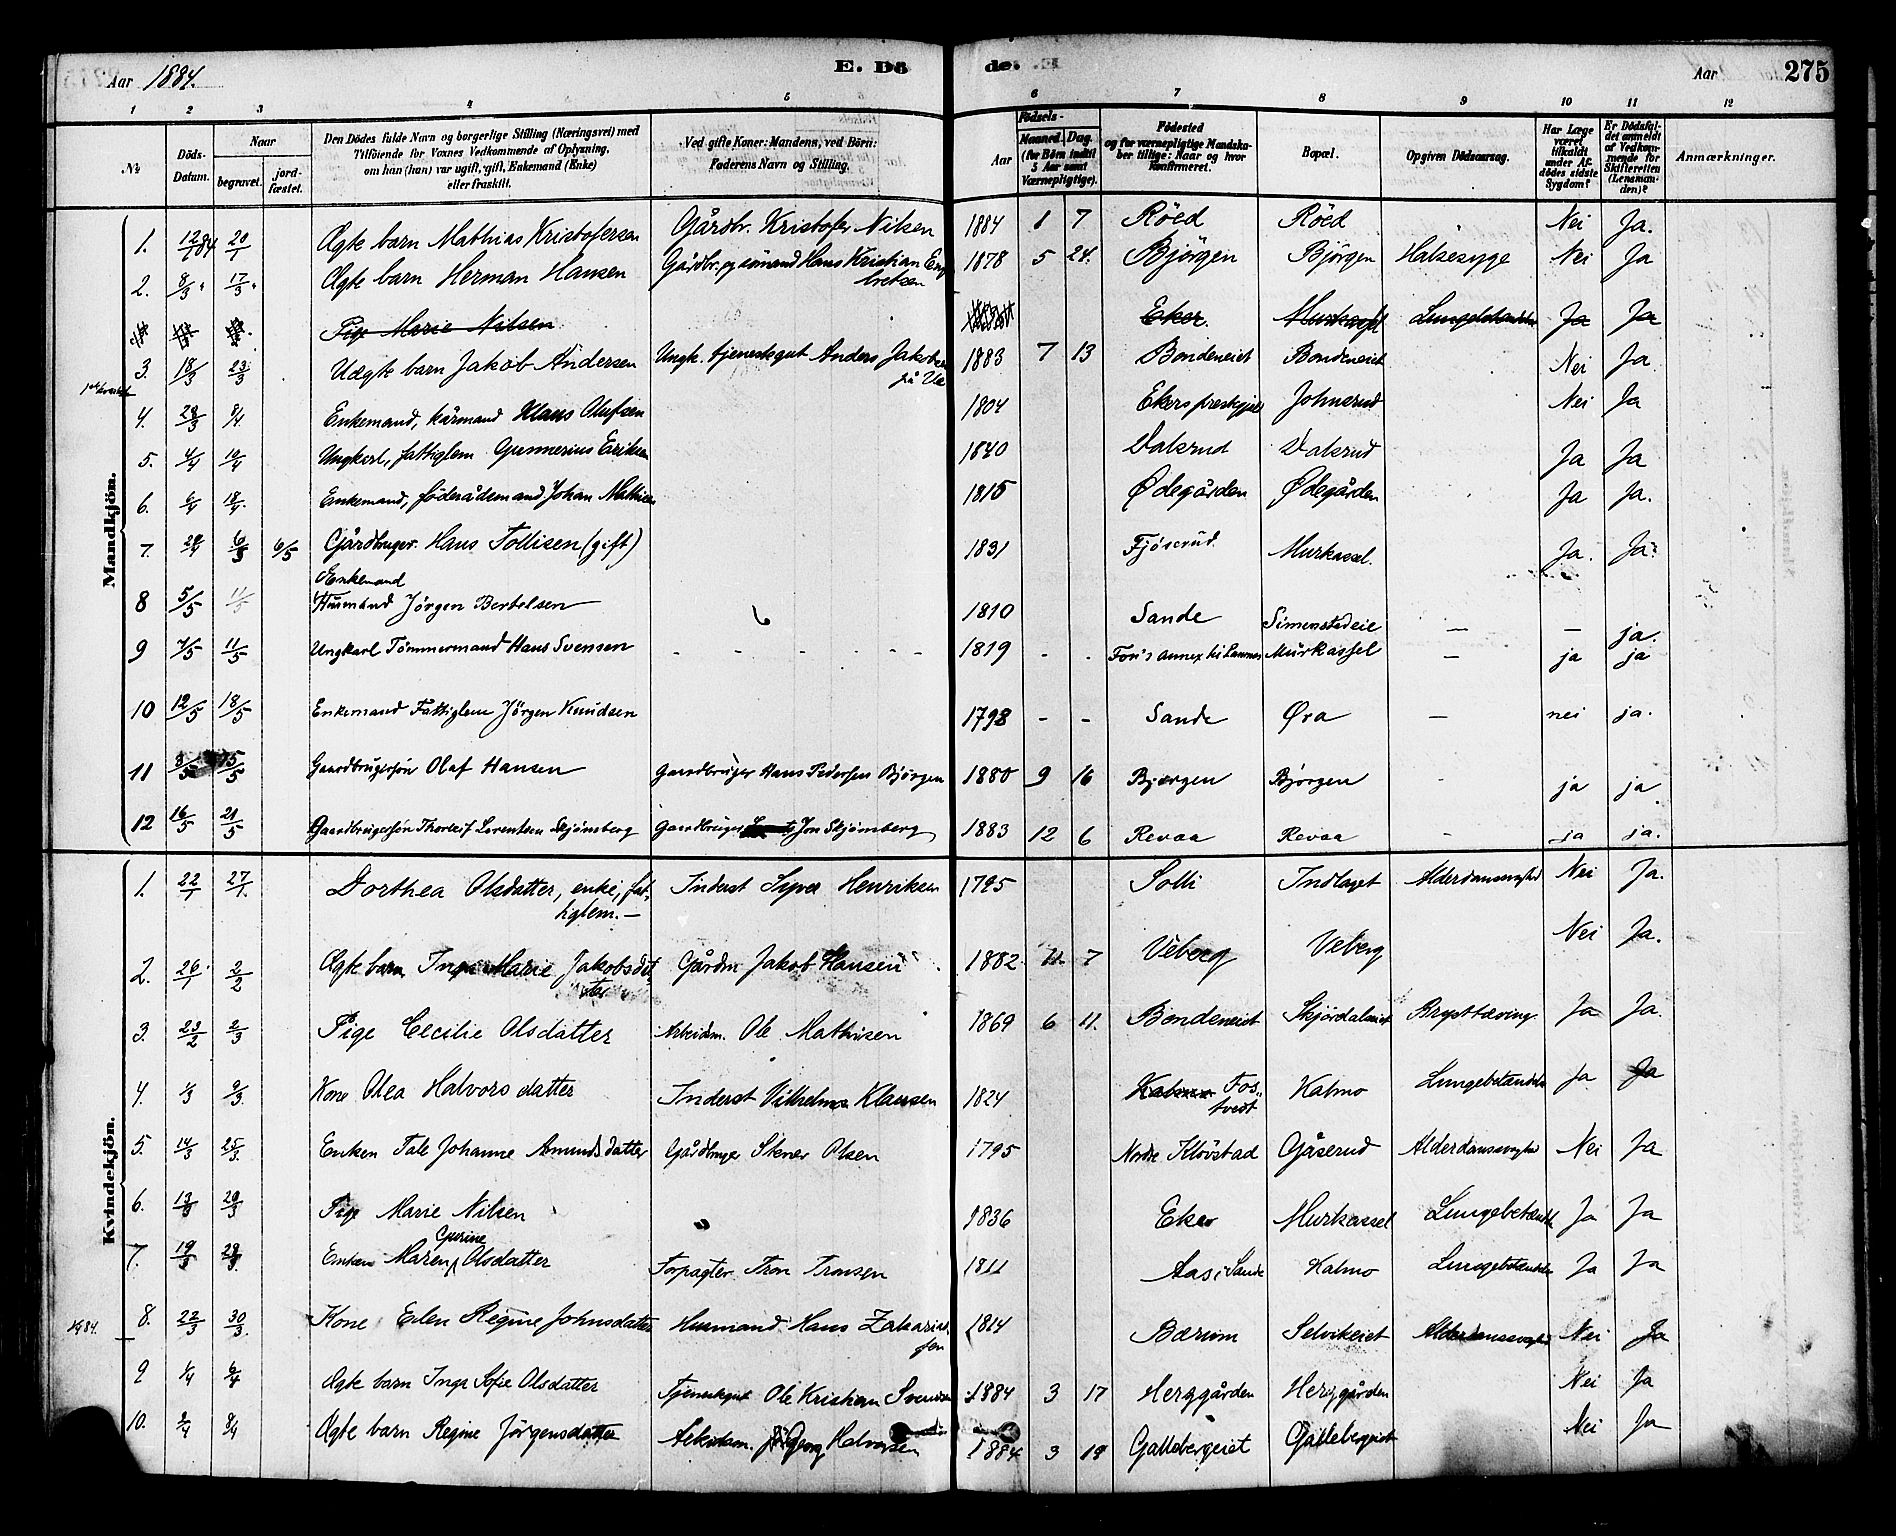 Aar 1884. E. Dö
de. Aar 275
1 2 3 4 5 6 7 8 9 10 11 12
№ Döds-Datum. Naar begravet. jordfæstet. Den Dödes fulde Navn og borgerlige Stilling (Næringsvei) med Tilföiende for Voxnes Vedkommende af Oplysning, om han (hun) var ugift, gift, Enkemand (Enke) eller fraskilt. Ved gifte Koner: Mandens, ved Börn: Faderens Navn og Stilling. Födsels- Aar Maaned Dag. (for Börn indtil 5 Aar samt Værnepligtige). Födested og for værnepligtige Mandskaber tillige: Naar og hvor Konfirmeret. Bopæl. Opgiven Dödsaarsag. Har Læge været tilkaldt under Afdödes sidste Sygdom? Er Dödsfaldet anmeldt af Vedkommende for Skifteretten (Lensmanden)? Anmærkninger.
Mandkjön.
1. 12/1 84 20/1 Ægte barn Mathias Kristofersen Gårdbr. Kristofer Nilsen 1884 1 7 Röed Röed Nei Ja.
2. 8/3 17/3 Ægte barn Herman Hansen Gårdbr. og sömand Hans Kristian Engbretsen 1878 5 24. Bjørgen Bjørgen Halsesyge Nei Ja
Pige Marie Nilsen Eker. Murkassel Lungebetændelse Ja Ja
3. 18/3 23/3 Uægte barn Jakob Andersen Ungk. tjenestegut Anders Jakobsen på 1883 7 13 Bondeneiet Bondeneiet Nei Ja
4. 28/3 8/4 Enkemand, kårmand Klaus Olufsen 1804 Ekers prestegjeld Johnsrud Nei Ja
5. 4/4 10/4 Ungkarl, fattiglem Gunnerius Eriksen 1840 Valsrud Valsrud Ja Ja
6. 6/4 18/4 Enkemand, föderådsmand Johan Mathisen 1815 Ødegården Ødegården Ja Ja.
7. 28/4 6/5 6/5 Gårdbruger Hans Tollisen (gift) 1831 Fjöserud Murkassel. Ja. Ja.
8 5/5 11/5 Enkemand Husmand Jörgen Bertelsen 1810 Sande Simenstadeie — — ja.
9 7/5 11/5 Ungkarl Tömmermand Hans Svensen - - - - - 1819 - - annex til Murkassel — ja ja
10 12/5 18/5 Enkemand Fattiglem Jörgen Knudsen 1798 - - Sande Øra — nei ja.
11 8/5 15/5 Gaardbrugersön Olaf Hansen Gaardbruger Hans Pedersen Bjørgen 1880 9 16 Bjørgen Bjørgen - ja ja
12 16/5 21/5 Gaardbrugersön Thorleif Larentsen Skjönsberg Gaardbruger Jon Skjönsberg 1883 12 6 Revaa Revaa - ja ja.
Kvindekjön.
1. 22/1 27/1. Dorthea Olsdatter, enke, fattiglem. — Inderst Syver Henriksen 1795 Solli Indlaget Alderdomssvaghed Nei Ja.
2. 26/1 2/2 Ægte barn Inga Marie Jakobsdatter Gårdm Jakob Hansen 1882 11. 7 Veberg Veberg Nei Ja.
3. 23/2 2/3 Pige Cecilie Olsdatter Arbeidsm. Ole Mathisen 1869 6 11. Bondeneiet Skjördalseiet Brysttæring Ja Ja.
4. 1/3 9/3. Kone Olea Halvorsdatter Inderst Vilhelm Klausen 1824 Kalmo Fostvedt Kalmo Lungebetændelse Ja Ja
5. 14/3 25/3. Enken Tale Johanne Amundsdatter Gårdbruger Stener Olsen 1795 Nordre Klövstad Gåserud Alderdomssvaghed Nei Ja
6. 13/3 29/3 Pige Marie Nilsen " 1836 Eker Murkassel Lungebetændelse Ja Ja
7. 19/3 29/3. Enken Maren Gurine Olsdatter Forpagter Tron Tronsen 1811 Aas i Sande Kalmo Lungebetændelse Ja Ja
8. 22/3 30/3. Kone Elen Regine Johnsdatter Husmand Hans Zakariassen 1814 Bærum Selvikeiet Alderdomssvaghed Nei Ja
9 1/4 6/4 Ægte barn Inga Sofie Olsdatter Tjenestegut Ole Kristian Svendsen 1884 3 17 Herggården Herggården Nei Ja
10. 2/4 8/4 Ægte barn Regine Jörgensdatter Arbeidsm. Georg Halvorsen 1884 3 18 Gallebergeiet Gallebergeiet Nei Ja